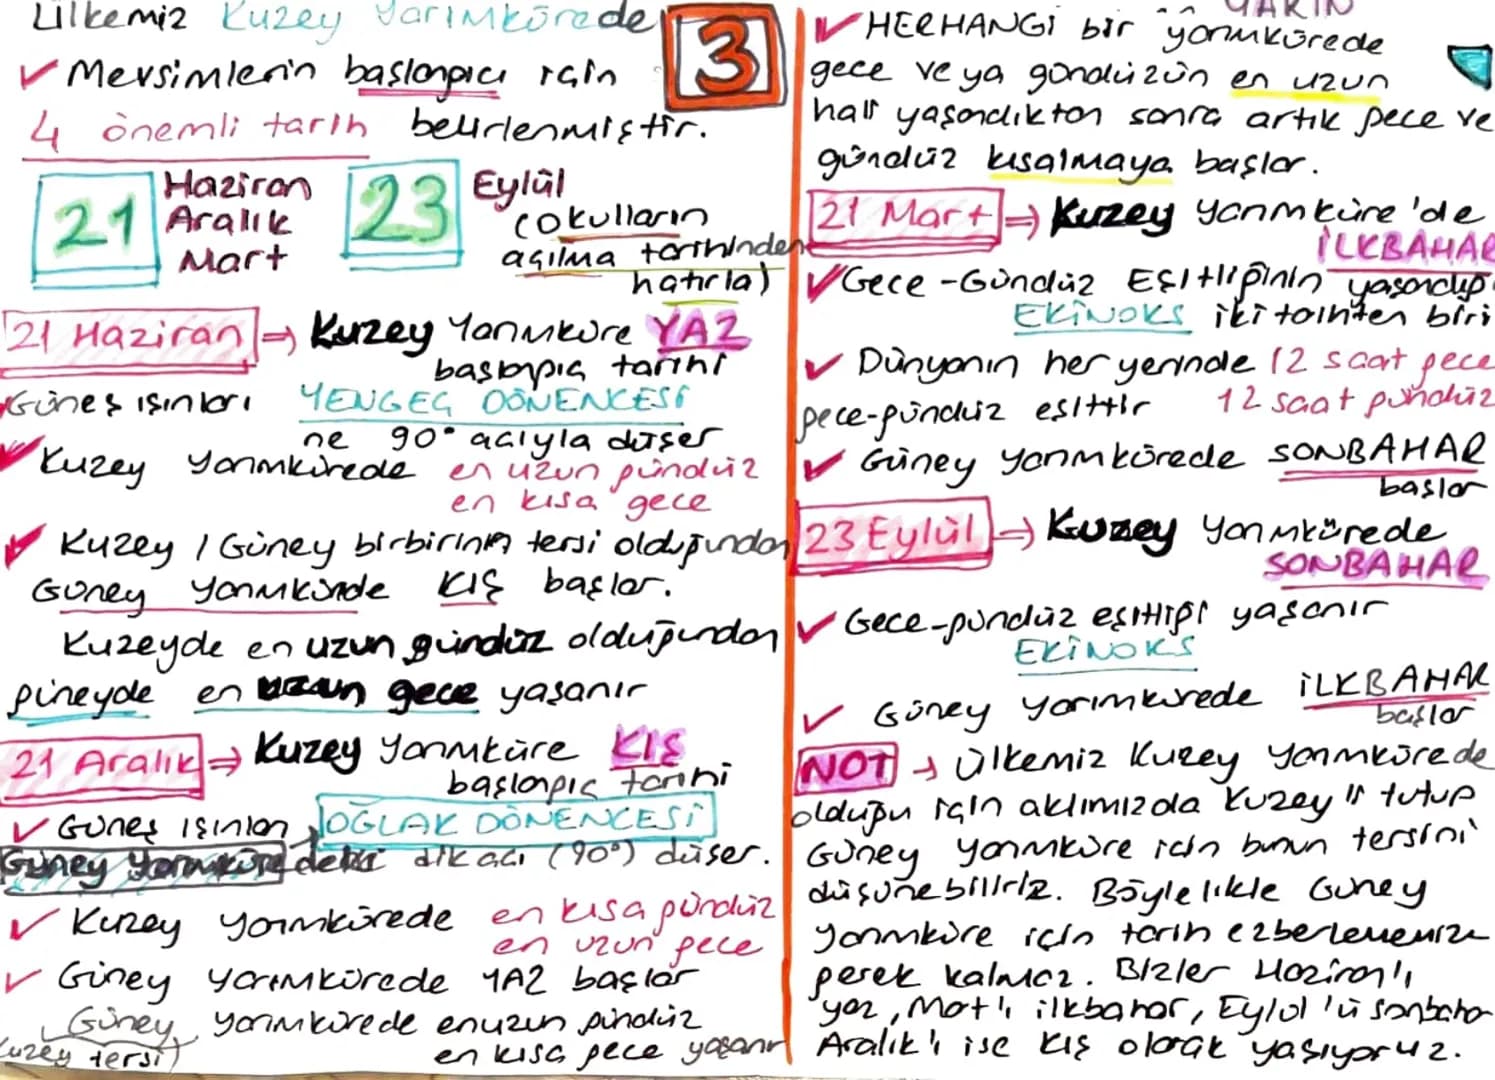 Ülkemiz Kuzey Yarımkürede
3
✓ Mevsimlerin başlangıcı için
4 önemli tarih belirlenmiştir.
21 Haziran
Aralık
Mart
23 Eylül
(okulların
açılma tarihinden
hatırla)
21 Haziran ⇒ Kuzey Yarımküre YAZ
başlangıç tarihi
Güneş ışınları YENGEÇ DÖNENCESİ
ne 90° açıyla düşer
✓ Kuzey yarımkürede en uzun gündüz
en kısa gece
✓ Kuzey / Güney birbirinin tersi olduğundan
Güney yarımkürede KIŞ başlar.
Kuzeyde en uzun gündüz olduğundan
güneyde en uzun gece yaşanır
21 Aralık ⇒ Kuzey Yarımküre KIŞ
başlangıç tarihi
✓ Güneş ışınları OĞLAK DÖNENCESİ
Güney Yarımküredeki dik açı (90°) düşer.
✓ Kuzey yarımkürede en kısa gündüz
en uzun gece
✓ Güney yarımkürede YAZ başlar
Güney yarımkürede en uzun gündüz
Kuzey tersi) en kısa gece yaşanır
YARIM
✓ HERHANGİ bir yarımkürede
gece veya gündüzün en uzun
hali yaşandıktan sonra artık gece ve
gündüz kısalmaya başlar.
21 Mart ⇒ Kuzey Yarımküre'de
İLKBAHAR
✓ Gece-Gündüz Eşitliğinin yaşandığı
EKİNOKS iki tarihten biri
✓ Dünyanın her yerinde 12 saat gece
gece-gündüz eşittir 12 saat gündüz
✓ Güney yarımkürede SONBAHAR
başlar
23 Eylül ⇒ Kuzey Yarımkürede
SONBAHAR
✓ Gece-gündüz eşitliği yaşanır
EKİNOKS
✓ Güney yarımkürede İLKBAHAR
başlar
NOT → Ülkemiz Kuzey Yarımkürede
olduğu için aklımızda Kuzey'i tutup
Güney yarımküre için bunun tersini
düşünebiliriz. Böylelikle Güney
yarımküre için tarih ezberlememize
gerek kalmaz. Bizler Haziran'ı
yaz, Mart'ı ilkbahar, Eylül'ü sonbahar
Aralık'ı ise kış olarak yaşıyoruz.